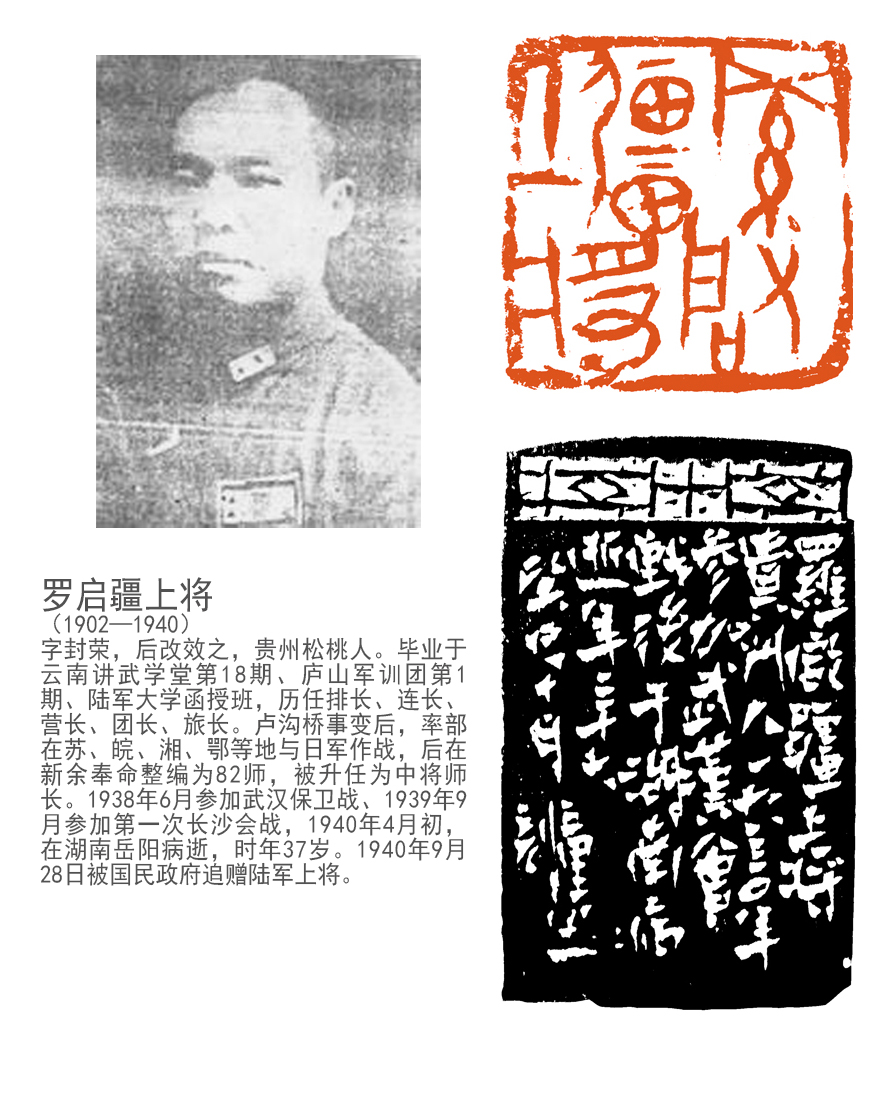 罗启疆上将
（1902—1940）
字封荣，后改效之，贵州松桃人。毕业于
云南讲武学堂第18期、庐山军训团第1
期、陆军大学函授班，历任排长、连长、
营长、团长、旅长。卢沟桥事变后，率部
在苏、皖、湘、鄂等地与日军作战，后在
新余奉命整编为82师，被升任为中将师
长。1938年6月参加武汉保卫战、1939年9
月参加第一次长沙会战，1940年4月初，
在湖南岳阳病逝，时年37岁。1940年9月
28日被国民政府追赠陆军上将。
羅啟疆上將